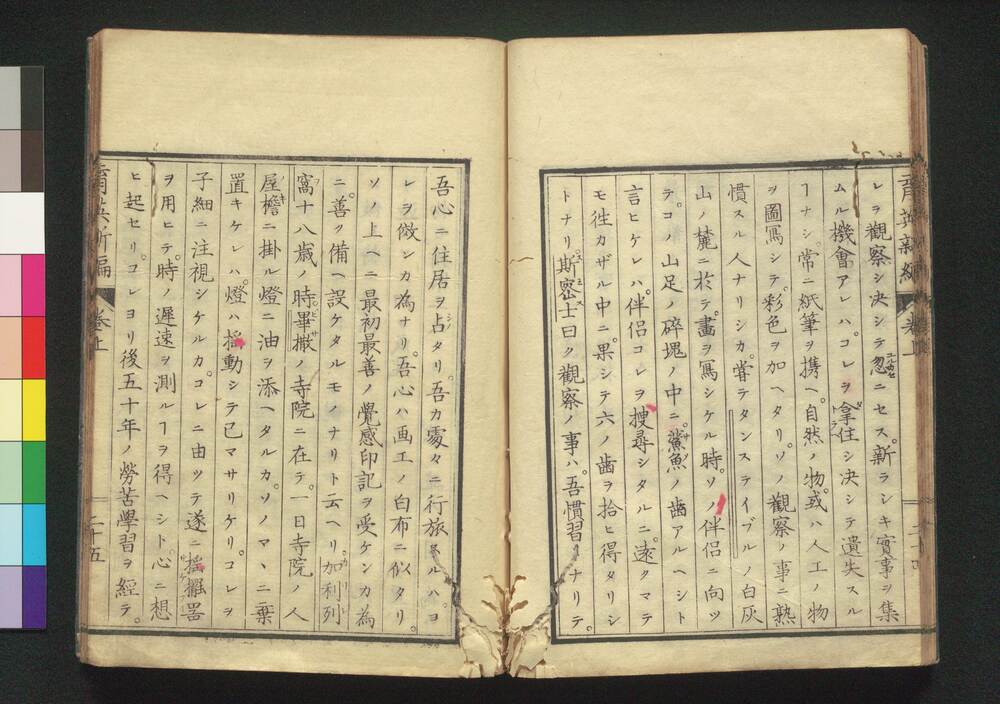 レヲ觀察シ決シテ忽ニセス。新ラシキ實事ヲ集
ムル機會アレハ。コレヲ拿住シ決シテ遺失スル
ヿナシ。常ニ紙筆ヲ携ヘ。自然ノ物。或ハ人工ノ物
ヲ圖寫シテ。彩色ヲ加ヘタリ。ソノ觀察ノ事ニ熟
慣スル人ナリシカ。嘗テタンステイブルノ白灰
山ノ麓ニ於テ。畫ヲ寫シケル時。ソノ伴侶ニ向ツ
テ。コノ山足ノ碎塊ノ中ニ。鯊魚ノ齒アルヘシト
言ヒケレハ。伴侶コレヲ搜尋シタルニ。遠クマテ
モ徃カザル中ニ。果シテ六ノ齒ヲ拾ヒ得タリシ
トナリ。斯密士曰ク觀察ノ事ハ。吾慣習トナリテ。
吾心ニ住居ヲ占タリ。吾カ處々ニ行旅スルハ。ヨ
レヲ傚ンカ為ナリ。吾心ハ画工ノ白布ニ似タリ。
ソノ上ヘニ最初最善ノ覺感印記ヲ受ケンカ為
ニ。善ク備ヘ設ケタルモノナリト云ヘリ。加利列
窩十八歳ノ時。畢撒ノ寺院ニ在テ。一日寺院ノ人
屋檐ニ掛ル燈ニ油ヲ添ヘタルカ。ソノマヽニ棄
置キケレハ。燈ハ搖動シテ已マサリケリ。コレヲ
子細ニ注視シケルカ。コレニ由ツテ遂ニ搖擺器
ヲ用ヒテ。時ノ遲速ヲ測ルヿヲ得ヘシト。心ニ想
ヒ起セリ。コレヨリ後五十年ノ勞苦學習ヲ經テ。
卷上
二十五